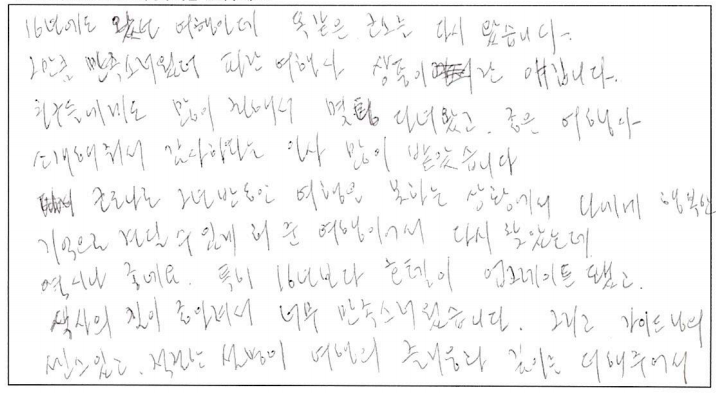 16년에도 왔던 여행인데 똑같은 코스로 다시 왔습니다.
그만큼 만족스러웠던 파란여행사 상품이란 얘깁니다.
친구들에게도 많이 전해서 몇팀 다녀왔고, 좋은 여행사
소개해줘서 감사하다는 인사 많이 받았습니다
코로나로 2년반동안 여행을 못하는 상황에서 나에게 행복한
기억으로 견딜 수 있게 해 준 여행이어서 다시 찾았는데
역시나 좋네요. 특히 16년보다 호텔이 업그레이드 됐고,
식사의 질이 좋아져서 너무 만족스러웠습니다. 그리고 가이드님의
센스있고, 적절한 설명이 여행의 즐거움과 깊이를 더해주어서